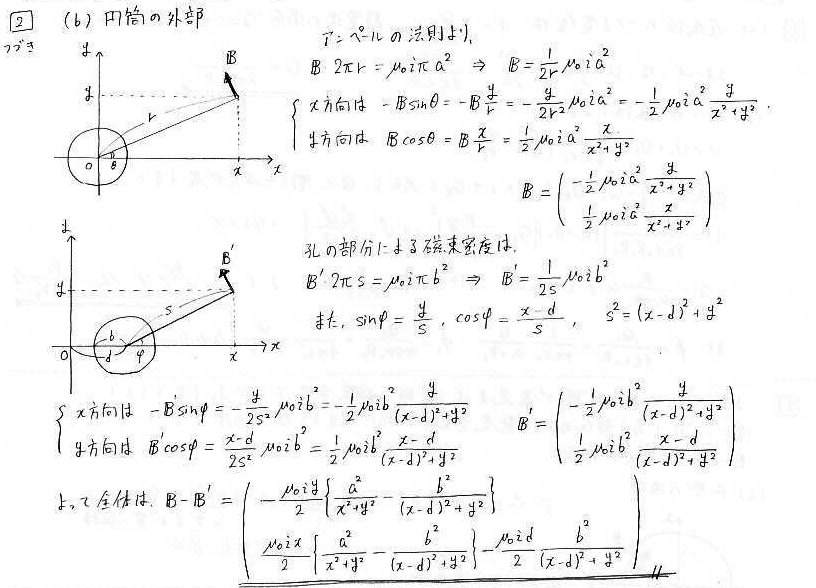 2 つづき (b) 円筒の外部
アンペールの法則より、
B 2πr = μ₀iπa² ⇒ B = 1/2r μ₀ia²
x方向は -Bsinθ = -B y/r = - y/2r² μ₀ia² = - 1/2 μ₀ia² y/x²+y² .
y方向は Bcosθ = B x/r = 1/2 μ₀ia² x/x²+y²
B = ( - 1/2 μ₀ia² y/x²+y²
1/2 μ₀ia² x/x²+y² )
y B y r O θ x x
孔の部分による磁束密度は、
B' 2πs = μ₀iπb² ⇒ B' = 1/2s μ₀ib²
また、sinφ = y/s , cosφ = x-d/s , s² = (x-d)²+y²
y B' y s b O d φ x x
x方向は -B'sinφ = - y/2s² μ₀ib² = - 1/2 μ₀ib² y/(x-d)²+y²
y方向は B'cosφ = x-d/2s² μ₀ib² = 1/2 μ₀ib² x-d/(x-d)²+y²
B' = ( - 1/2 μ₀ib² y/(x-d)²+y²
1/2 μ₀ib² x-d/(x-d)²+y² )
よって全体は、B-B' = ( - μ₀iy/2 { a²/x²+y² - b²/(x-d)²+y² }
μ₀ix/2 { a²/x²+y² - b²/(x-d)²+y² } - μ₀id/2 b²/(x-d)²+y² )